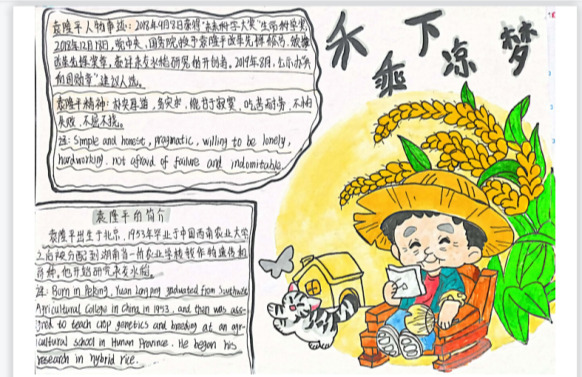 禾下乘凉梦
袁隆平人物事迹：2018年9月8日获得"未来科学大奖"生命科学奖
2018年12月18日，党中央、国务院授予袁隆平改革先锋称号
袁隆平精神：朴实厚道，务实求，能甘于寂寞，吃苦耐劳，不怕
失败，不屈不挠。
注：Simple and honest, pragmatic, willing to be lonely,
hardworking, not afraid of failure and indomitable.
袁隆平的简介
袁隆平出生于北京，1953年毕业于中国西南农业大学
之后被分配到湖南省一所农业学校教作物遗传和
育种，他开始研究杂交水稻。
注：Born in Peking, Yuan Longping graduated from Southwest
Agricultural College in China in 1953, and then was ass-
igned to teach crop genetics and breeding at an agr-
icultural school in Hunan Province. He began his
research in hybrid rice.